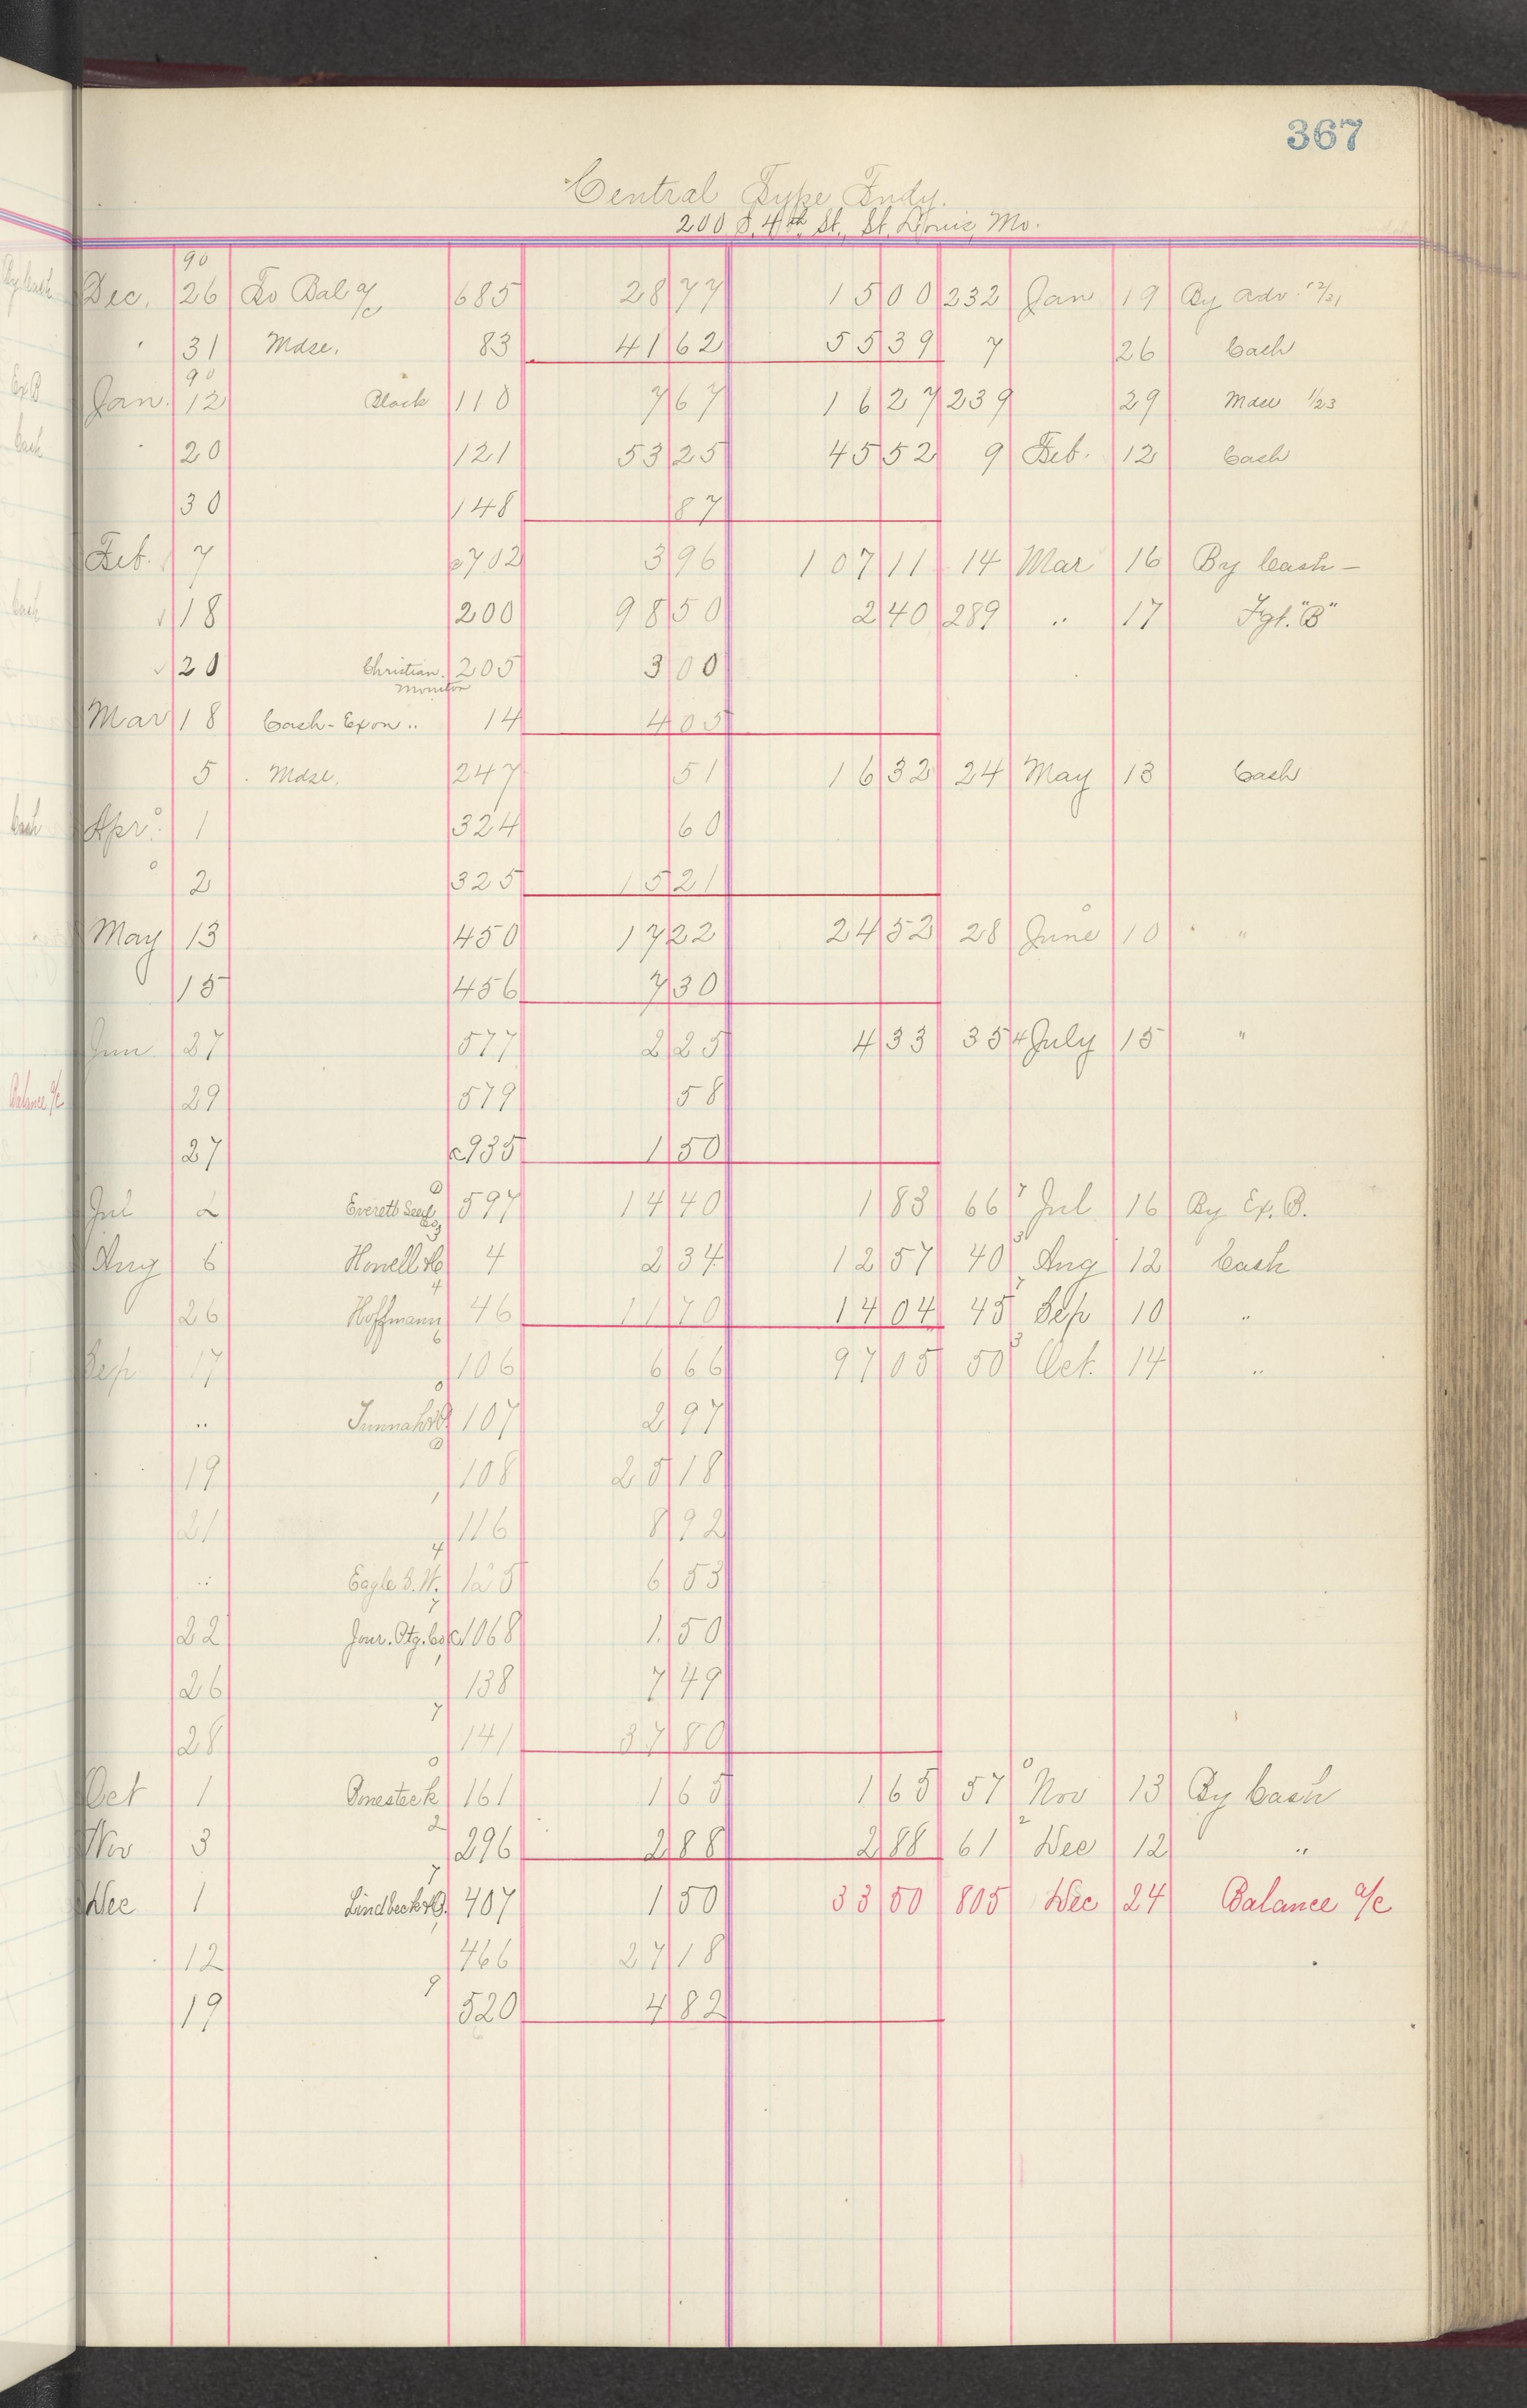 367
Central Type Fndy.
200 S. 4th St., St. Louis, Mo.
90
Dec. 26 To Bal a/c 685 28 77 15 00 232 Jan 19 By adv. 12/31
31 Mdse. 83 41 62 55 39 7 26 Cash
90
Jan. 12 Black 110 7 67 16 27 239 29 Mdse 1/23
20 121 53 25 45 52 9 Feb. 12 Cash
30 148 87
Feb. 7 c702 3 96 107 11 14 Mar 16 By Cash —
18 200 98 50 2 40 289 " 17 Fgt. "B"
20 Christian. 205 3 00
Monitor
Mar 18 Cash - Ex on .. 14 4 05
5 Mdse. 247 51 16 32 24 May 13 Cash
Apr. 1 324 60
2 325 15 21
May 13 450 17 22 24 52 28 June 10 "
15 456 7 30
Jun 27 577 2 25 4 33 35 4 July 15 "
29 579 58
27 c935 1 50
Jul 2 Everett Seed Co 597 14 40 1 83 66 7 Jul 16 By Ex. B.
Aug 6 Howell & Co 4 2 34 12 57 40 3 Aug 12 Cash
26 Hoffmann 46 11 70 14 04 45 7 Sep 10 "
Sep 17 106 6 66 97 05 50 3 Oct. 14 "
" 107 2 97
19 108 25 18
21 116 8 92
" Eagle S. W. 125 6 53
22 Jour. Ptg. Co c1068 1 50
26 138 7 49
28 141 37 80
Oct 1 Bonesteel 161 1 65 1 65 57 0 Nov 13 By Cash
Nov 3 296 2 88 2 88 61 2 Dec 12 "
Dec 1 407 1 50 33 50 805 Dec 24 Balance a/c
12 466 27 18
19 520 4 82